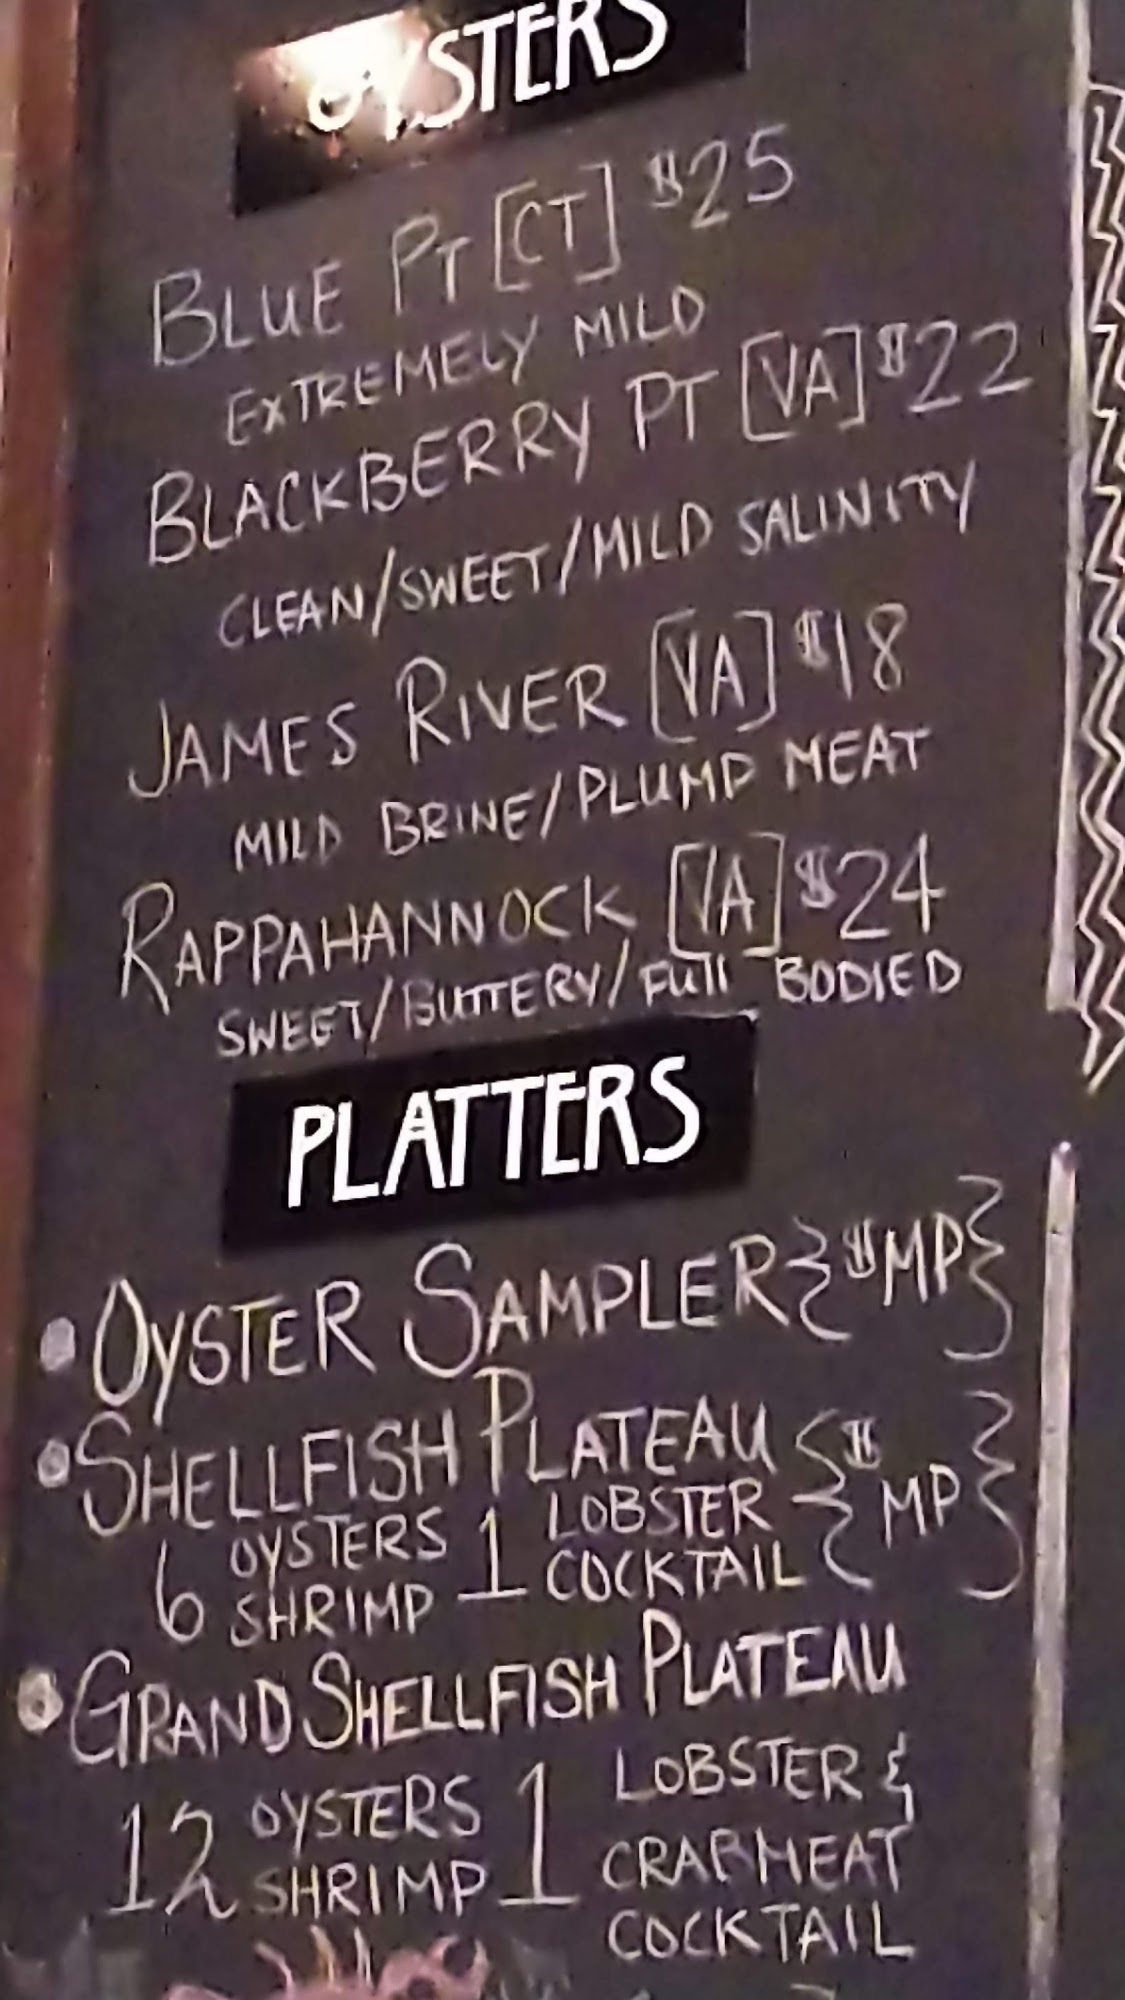 OYSTERS
BLUE PT [CT] $25
EXTREMELY MILD
BLACKBERRY PT [VA] $22
CLEAN/SWEET/MILD SALINITY
JAMES RIVER [VA] $18
MILD BRINE/PLUMP MEAT
RAPPAHANNOCK [VA] $24
SWEET/BUTTERY/FULL BODIED
PLATTERS
• OYSTER SAMPLER {$MP}
• SHELLFISH PLATEAU {$ MP}
6 OYSTERS 1 LOBSTER
SHRIMP COCKTAIL
• GRAND SHELLFISH PLATEAU
12 OYSTERS 1 LOBSTER &
SHRIMP CRABMEAT
COCKTAIL